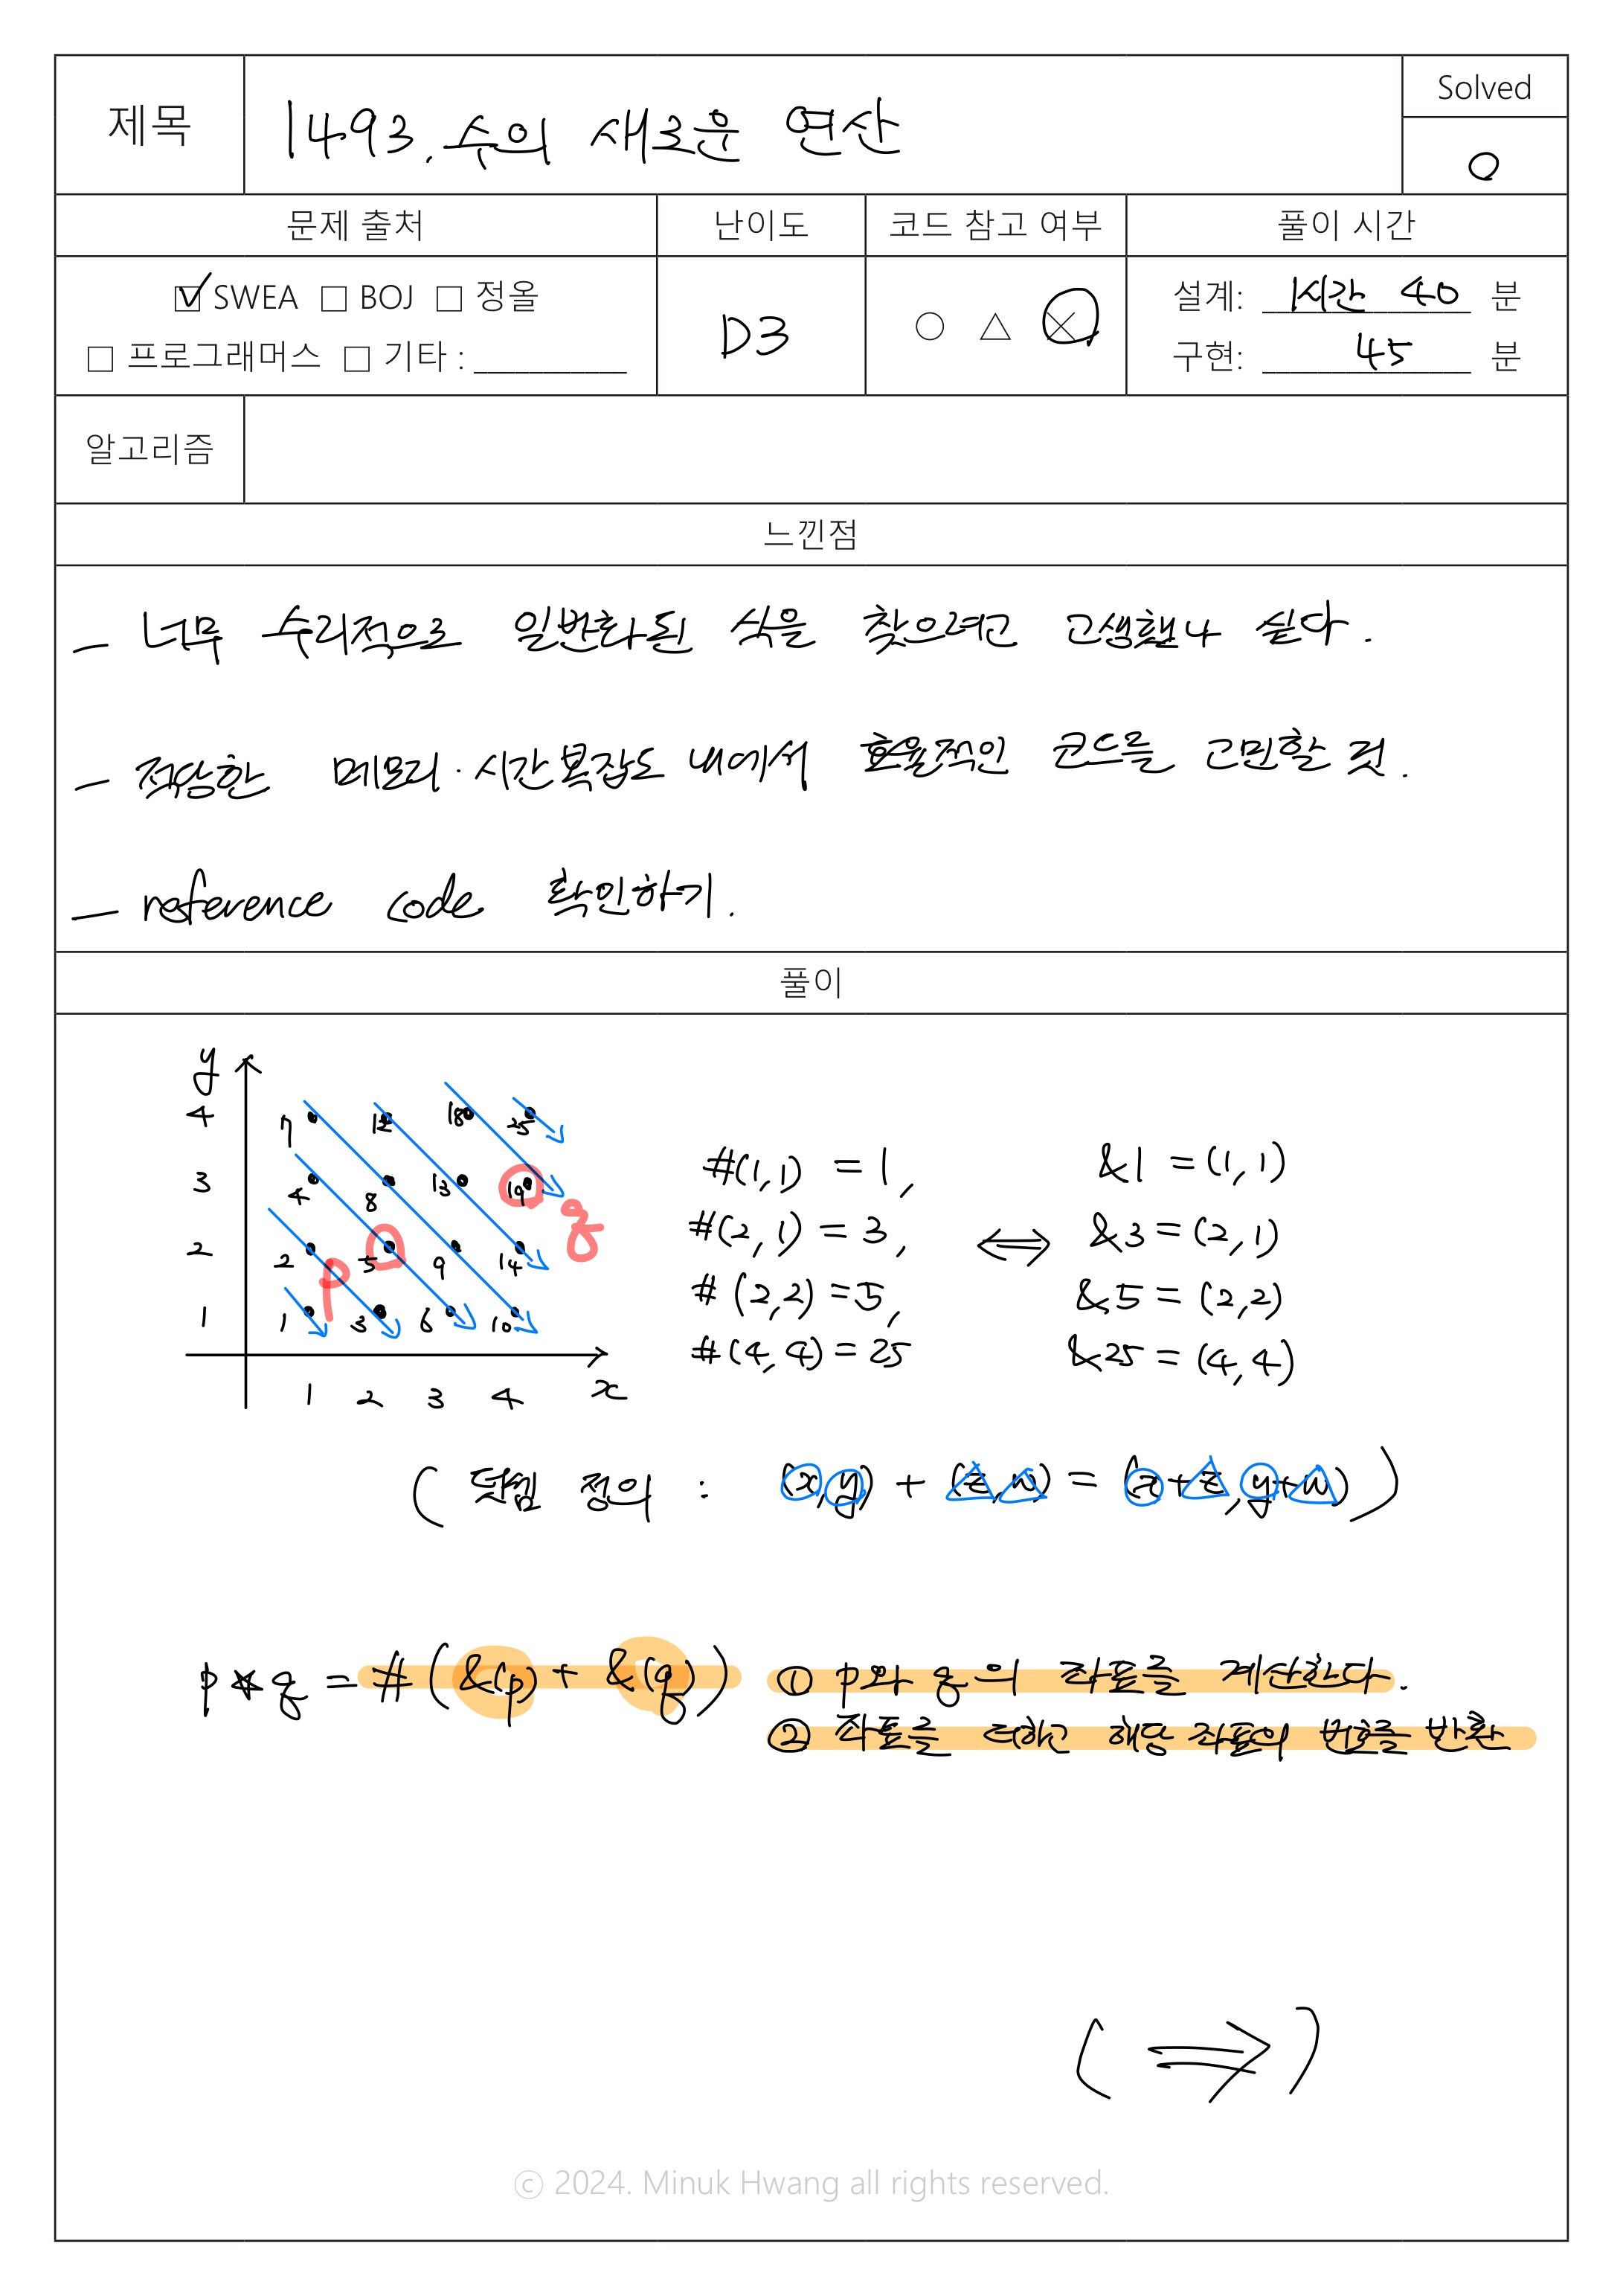 제목
1493. 수의 새로운 연산
Solved
O
문제 출처 난이도 코드 참고 여부 풀이 시간
☑ SWEA □ BOJ □ 정올
□ 프로그래머스 □ 기타 : __________
D3
○ △ ×
설계: 1시간 40 분
구현: 45 분
알고리즘
느낀점
- 너무 수리적으로 일반화된 식을 찾으려고 고생했나 싶다.
- 적당한 메모리·시간복잡도 내에서 효율적인 코드를 고민할 것.
- reference code 확인하기.
풀이
y
4 7 12 18 25
3 4 8 13 19 q
2 2 p 5 9 14
1 1 3 6 10
1 2 3 4 x
#(1,1) = 1,
#(2,1) = 3,
#(2,2) = 5,
#(4,4) = 25
⟺
&1 = (1,1)
&3 = (2,1)
&5 = (2,2)
&25 = (4,4)
( 덧셈 정의 : (x,y) + (z,w) = (x+z,y+w) )
p★q = #(&(p) + &(q))
① p와 q의 좌표를 계산한다.
② 좌표를 더하고 해당 좌표의 번호를 반환
( ⇒ )
© 2024. Minuk Hwang all rights reserved.